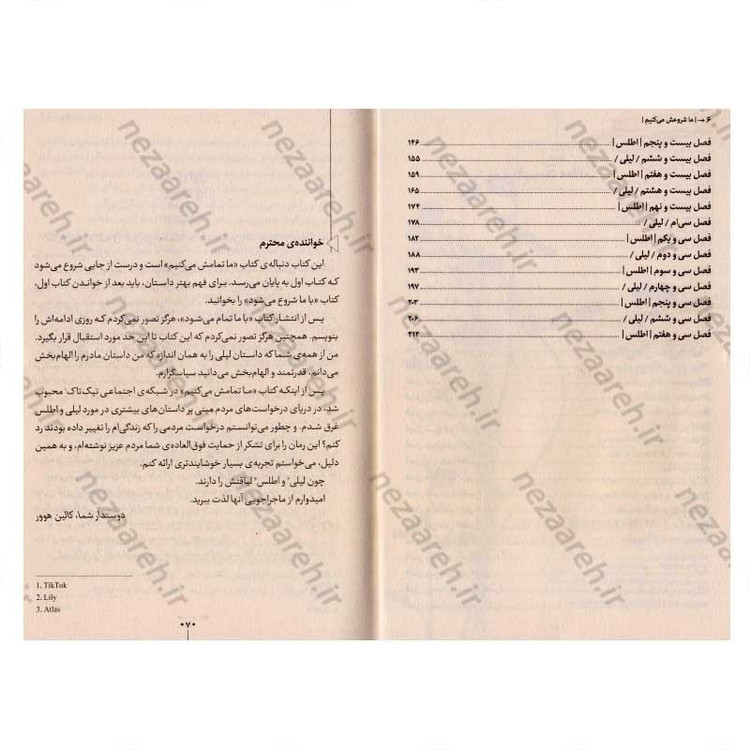 ۶ → | ما شروعش می‌کنیم |
فصل بیست و پنجم | اطلس | ۱۴۶
فصل بیست و ششم / لیلی / ۱۵۵
فصل بیست و هفتم | اطلس | ۱۵۹
فصل بیست و هشتم / لیلی / ۱۶۵
فصل بیست و نهم | اطلس | ۱۷۴
فصل سی‌ام / لیلی / ۱۷۸
فصل سی و یکم | اطلس | ۱۸۲
فصل سی و دوم / لیلی / ۱۸۸
فصل سی و سوم | اطلس | ۱۹۳
فصل سی و چهارم / لیلی / ۱۹۷
فصل سی و پنجم | اطلس | ۲۰۳
فصل سی و ششم / لیلی / ۲۰۶
فصل سی و هفتم | اطلس | ۲۱۳
خواننده‌ی محترم
این کتاب دنباله‌ی کتاب «ما تمامش می‌کنیم» است و درست از جایی شروع می‌شود
که کتاب اول به پایان می‌رسد. برای فهم بهتر داستان، باید بعد از خواندن کتاب اول،
کتاب «با ما شروع می‌شود» را بخوانید.
پس از انتشار کتاب «با ما تمام می‌شود»، هرگز تصور نمی‌کردم که روزی ادامه‌اش را
بنویسم. همچنین هرگز تصور نمی‌کردم که این کتاب تا این حد مورد استقبال قرار بگیرد.
من از همه‌ی شما که داستان لیلی را به همان اندازه که من داستان مادرم را الهام‌بخش
می‌دانم، قدرتمند و الهام‌بخش می‌دانید سپاسگزارم.
پس از اینکه کتاب «ما تمامش می‌کنیم» در شبکه‌ی اجتماعی تیک‌تاک¹ محبوب
شد، در دریای درخواست‌های مردم مبنی بر داستان‌های بیشتری در مورد لیلی و اطلس
غرق شدم. و چطور می‌توانستم درخواست مردمی را که زندگی‌ام را تغییر داده بودند رد
کنم؟ این رمان را برای تشکر از حمایت فوق‌العاده‌ی شما مردم عزیز نوشته‌ام، و به همین
دلیل، می‌خواستم تجربه‌ی بسیار خوشایندتری ارائه کنم.
چون لیلی² و اطلس³ لیاقتش را دارند.
امیدوارم از ماجراجویی آنها لذت ببرید.
دوستدار شما، کالین هوور
1. TikTok
2. Lily
3. Atlas
۰۷۰
nezaareh.ir
nezaareh.ir
nezaareh.ir
nezaareh.ir
nezaareh.ir
nezaareh.ir
nezaareh.ir